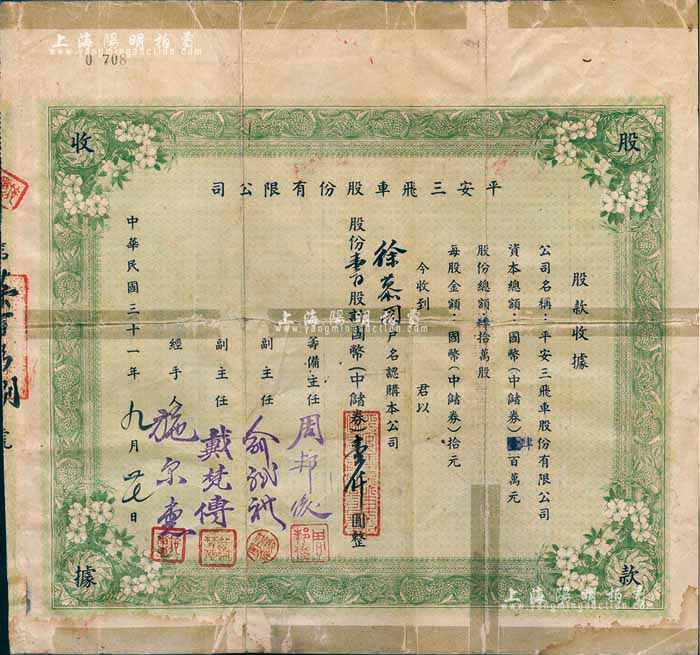 上海陽明拍賣
www.yangmingauction.com
0 708
股款收據
平安三飛車股份有限公司
股款收據
公司名稱：平安三飛車股份有限公司
資本總額：國幣（中儲券）肆百萬元
股份總額：肆拾萬股
每股金額：國幣（中儲券）拾元
今收到　君以
徐慕園戶名認購本公司
股份壹百股計國幣（中儲券）壹仟圓整
籌備主任　周邦俊
副主任
副主任　戴梵傳
經手人
中華民國三十一年九月　日
上海陽明拍賣
www.yangmingauction.com
上海陽明拍賣
www.yangmingauction.com